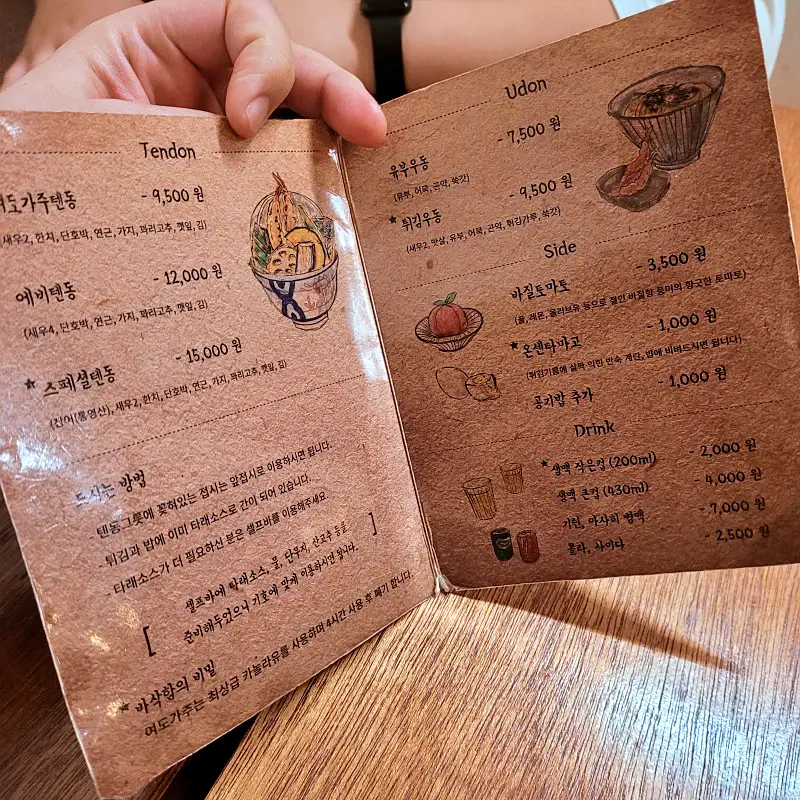 Tendon
여도가주텐동 - 9,500 원
새우2, 한치, 단호박, 연근, 가지, 꽈리고추, 깻잎, 김)
에비텐동 - 12,000 원
(새우4, 단호박, 연근, 가지, 꽈리고추, 깻잎, 김)
★ 스페셜텐동 - 15,000 원
(장어(통영산), 새우2, 한치, 단호박, 연근, 가지, 꽈리고추, 깻잎, 김)
드시는 방법
- 텐동그릇에 꽂혀있는 접시는 앞접시로 이용하시면 됩니다.
- 튀김과 밥에 이미 타래소스로 간이 되어 있습니다.
- 타래소스가 더 필요하신 분은 셀프바를 이용해주세요
[ 셀프바에 타래소스, 물, 단무지, 산고추 등을
준비해두었으니 기호에 맞게 이용하시면 됩니다. ]
★ 바삭함의 비밀
여도가주는 최상급 카놀라유를 사용하며 4시간 사용 후 폐기 합니다.
Udon
유부우동 - 7,500 원
(유부, 어묵, 곤약, 쑥갓)
★ 튀김우동 - 9,500 원
(새우2, 맛살, 유부, 어묵, 곤약, 튀김가루, 쑥갓)
Side
바질토마토 - 3,500 원
(꿀, 레몬, 올리브유 등으로 절인 바질향 풍미의 향긋한 토마토)
★ 온센타마고 - 1,000 원
(튀김기름에 살짝 익힌 반숙 계란, 밥에 비벼드시면 됩니다)
공기밥 추가 - 1,000 원
Drink
★ 생맥 작은컵 (200ml) - 2,000 원
생맥 큰컵 (430ml) - 4,000 원
기린, 아사히 병맥 - 7,000 원
콜라, 사이다 - 2,500 원